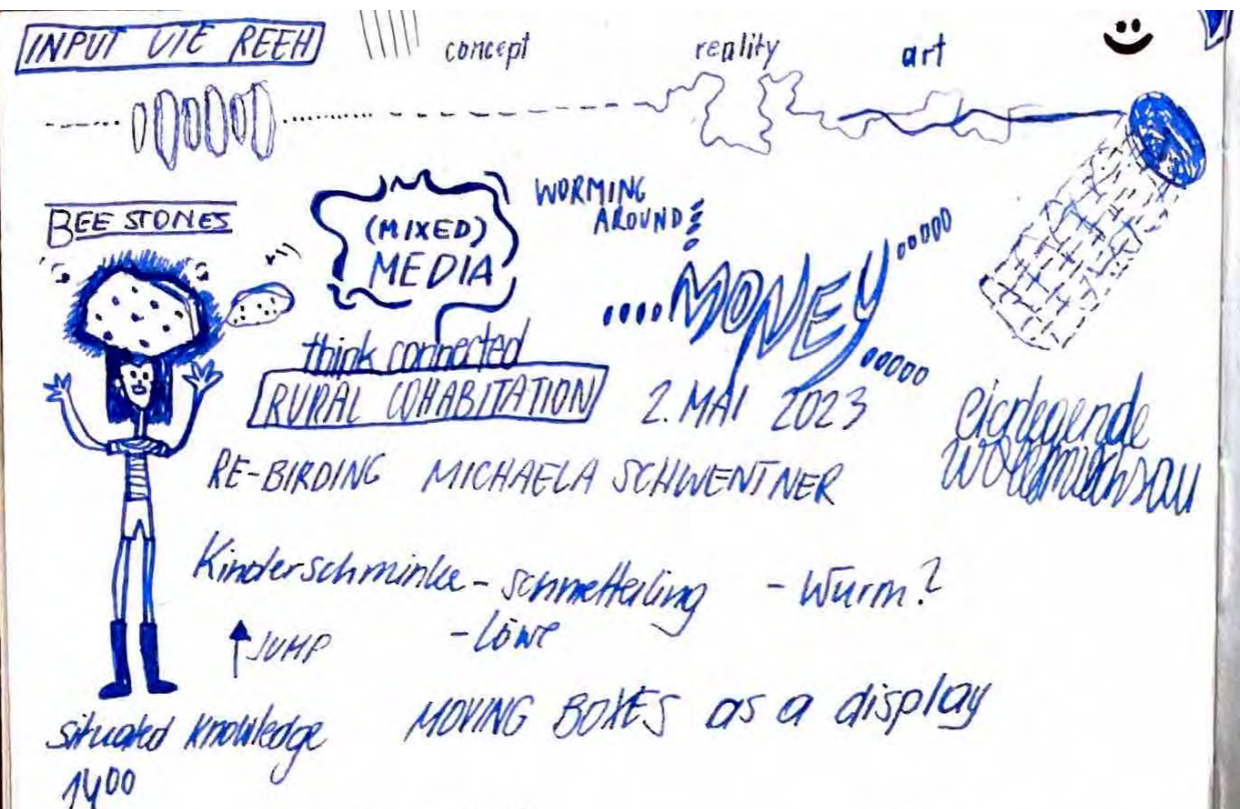 INPUT UTE REEH
concept reality art
BEE STONES
(MIXED)
MEDIA
WORMING
AROUND!
....MONEY....
think connected
RURAL COHABITATION 2. MAI 2023
eierlegende
wollmilchsau
RE-BIRDING MICHAELA SCHWENTNER
Kinderschminke - schmetterling - Wurm?
- Löwe
JUMP
MOVING BOXES as a display
situated knowledge
1400